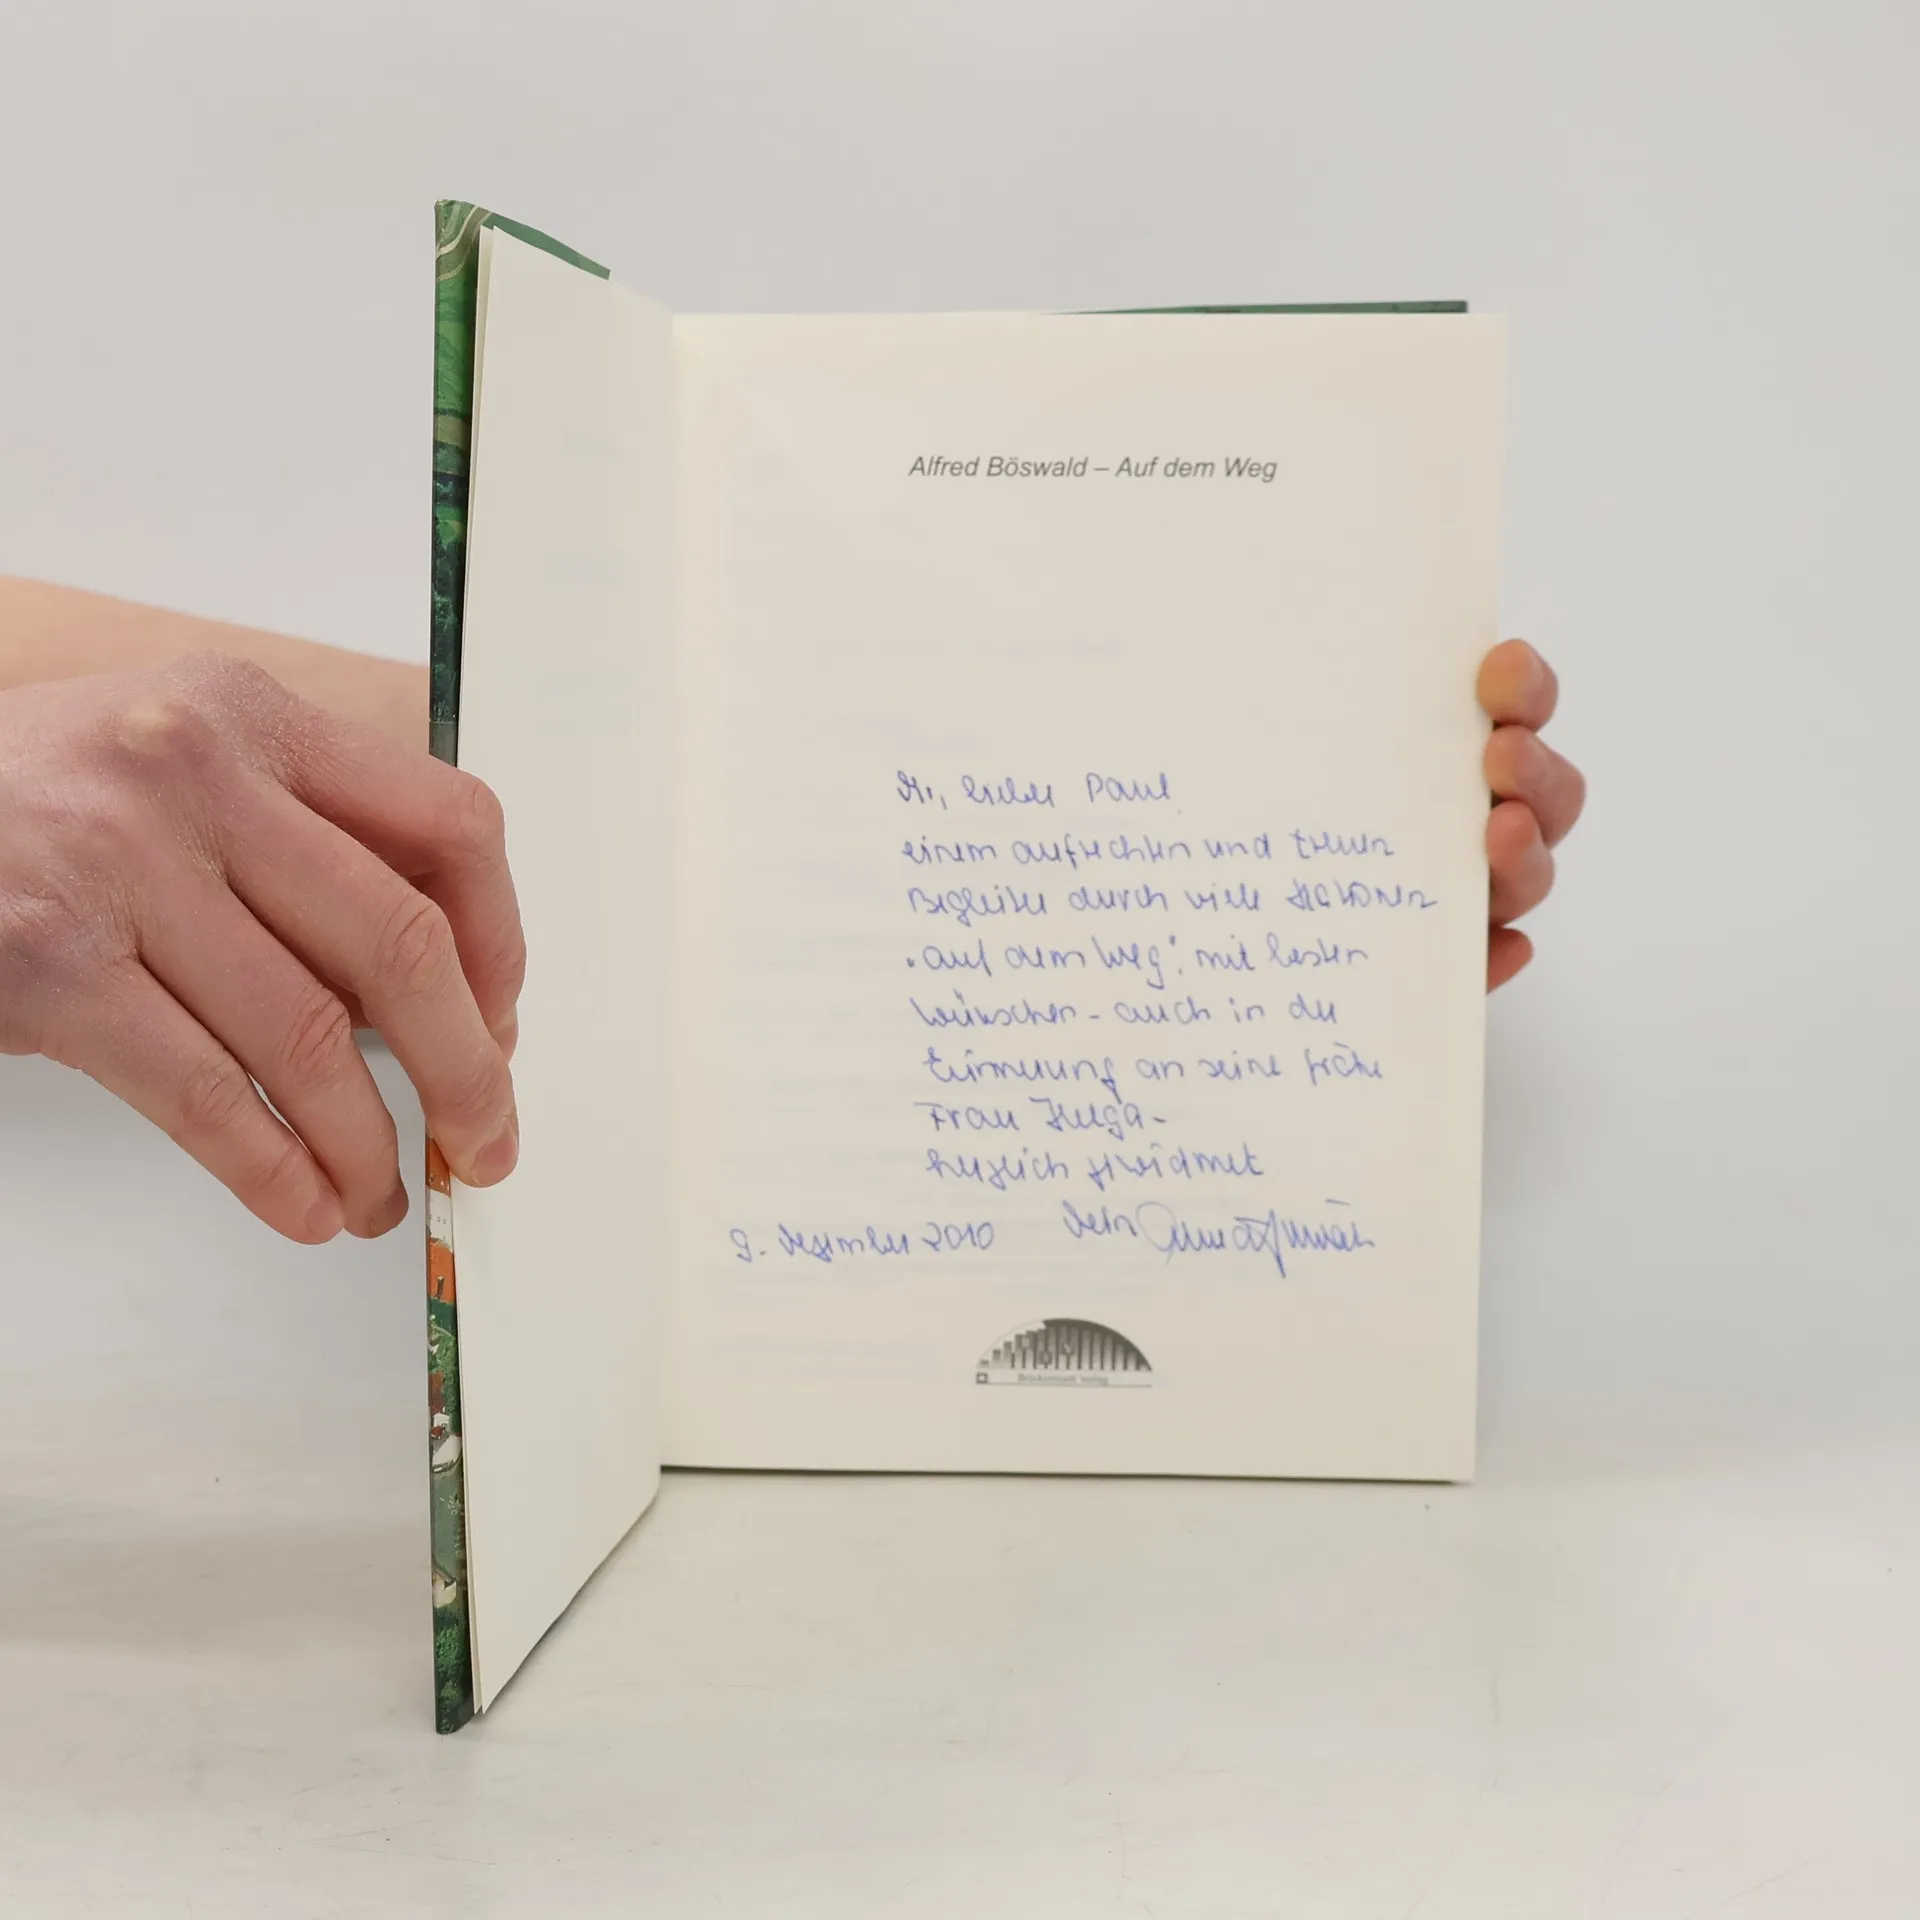 Alfred Böswald – Auf dem Weg
Dir, lieber Paul
einem aufrechten und treuen
Begleiter durch viele Stationen
"auf dem Weg", mit besten
Wünschen - auch in der
Erinnerung an seine
Frau Helga -
herzlich gewidmet
9. Dezember 2010 Dein
Brückenstadt Verlag